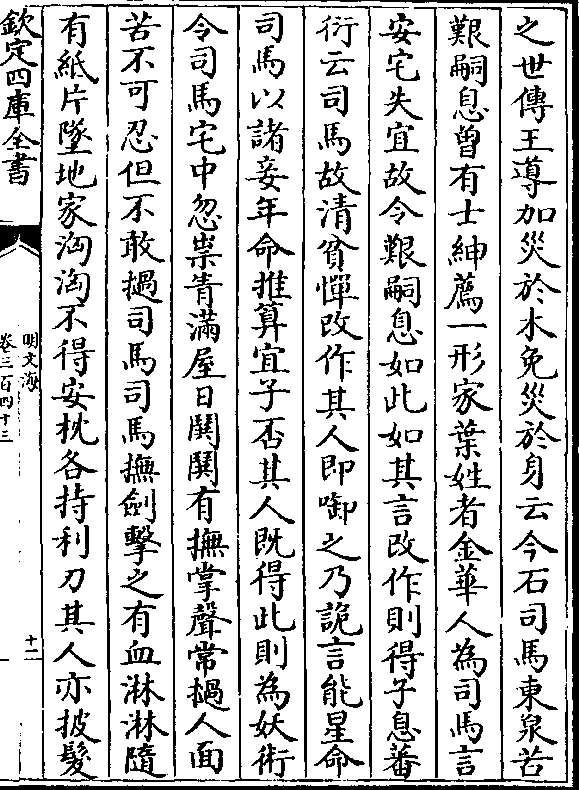 之世傳王導加災於木免災於身云今石司馬東泉苦
艱嗣息曽有士紳薦一形家葉姓者金華人為司馬言
安宅失宜故令艱嗣息如此如其言改作則得子息蕃
衍云司馬故清貧憚改作其人即啣之乃詭言能星命
司馬以諸妾年命推算宜子否其人既得此則為妖術
令司馬宅中忽祟青滿屋日鬨鬨有撫掌聲常撾人面
苦不可忍但不敢撾司馬司馬撫劍擊之有血淋淋隨
有紙片墜地家洶洶不得安枕各持利刀其人亦披髮
欽定四庫全書
明文海
卷三百四十三
十二